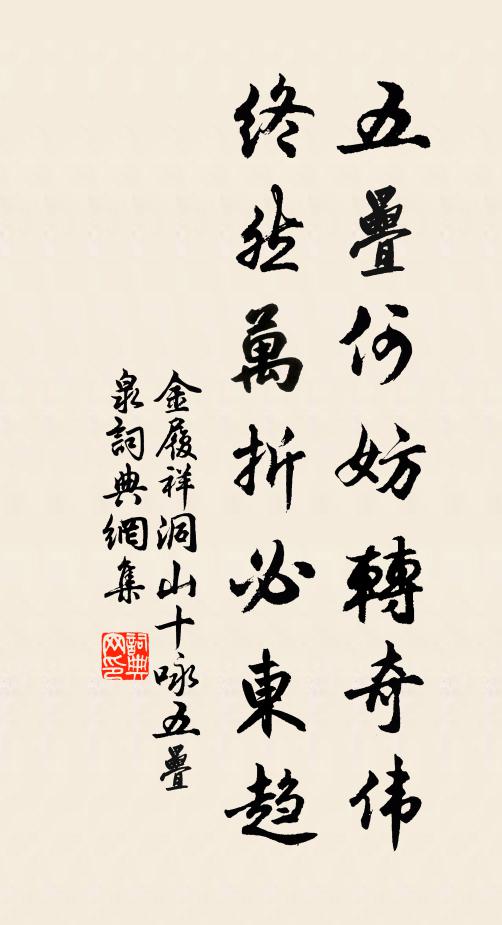 五疊何妨轉奇伟
終然萬折必東趨
金履祥洞山十咏五疊
泉詞典網集
詞典网印